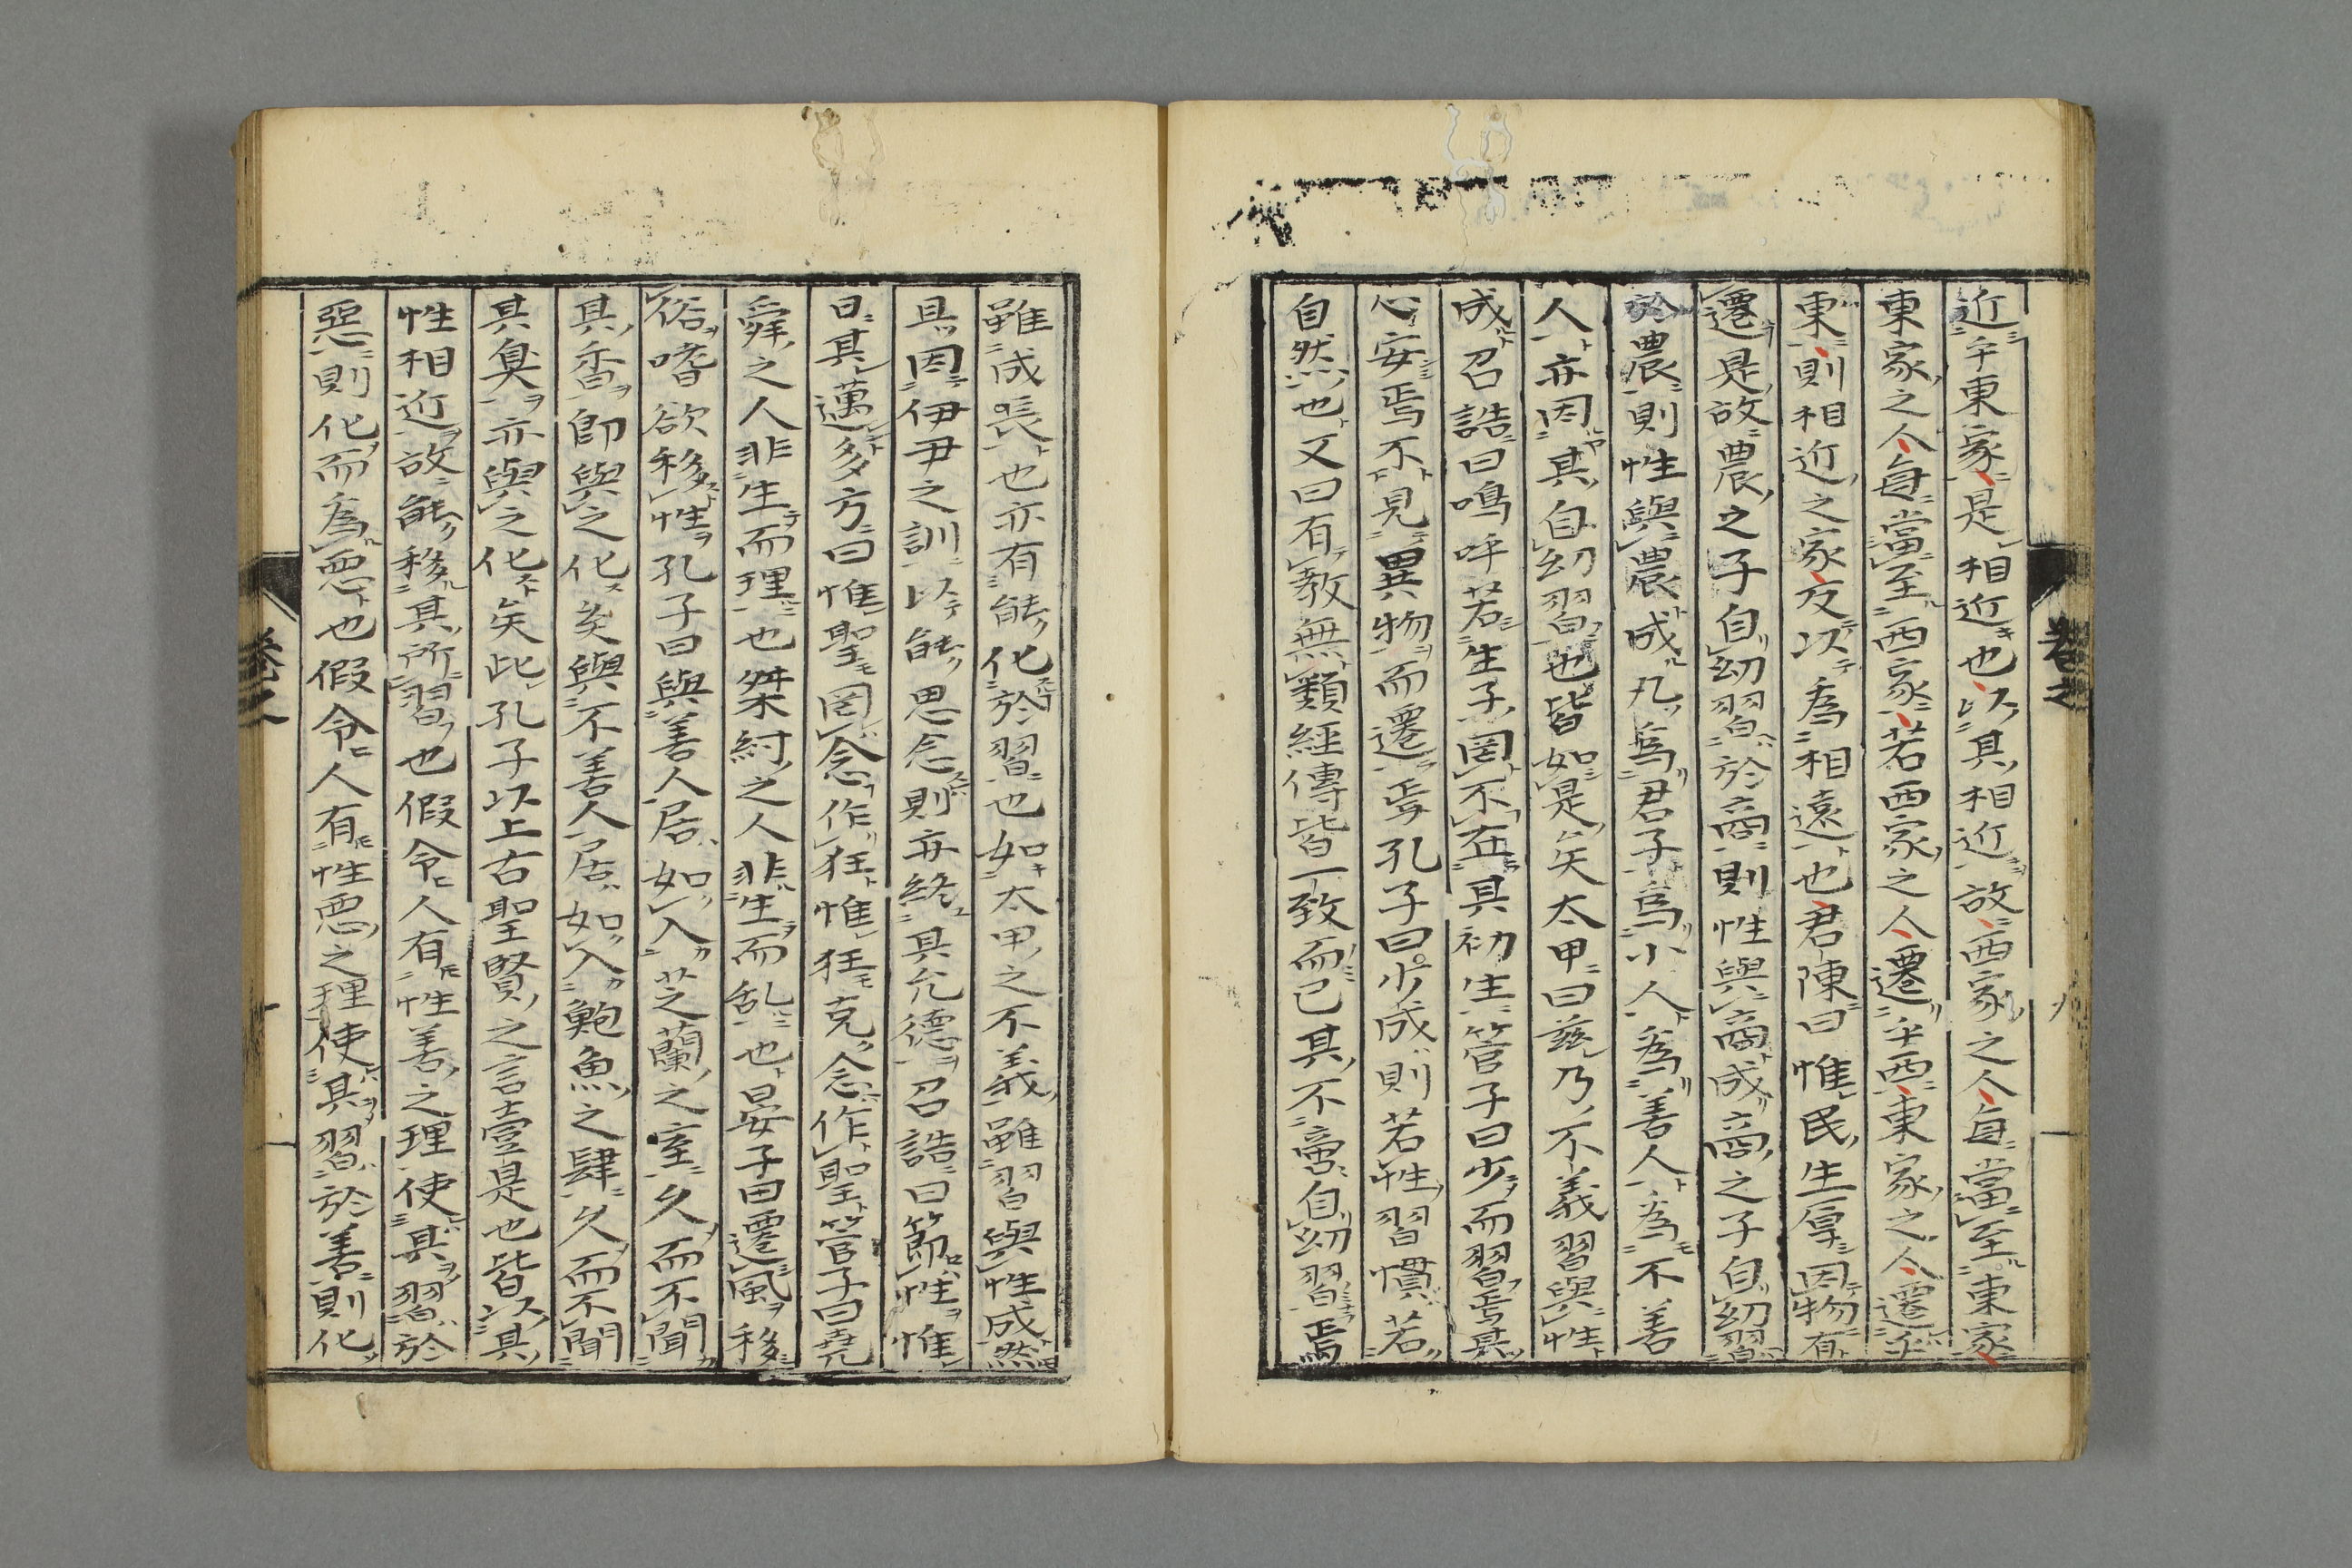 近乎東家是相近也以其相近故西家之人每當至東家
東家之人每當至西家若西家之人遷乎西東家之人遷乎
東則相近之家反以為相遠也君陳曰惟民生厚因物有
遷是故農之子自幼習於商則性與商成商之子自幼習
於農則性與農成凡為君子為小人為善人為不善
人亦因其自幼習也皆如是矣太甲曰茲乃不義習與性
成召誥曰嗚呼若生子罔不在其初生管子曰少而習焉其
心安焉不見異物而遷焉孔子曰少成則若性習慣若
自然也又曰有教無類經傳皆一致而已其不啻自幼習焉
雖成長也亦有能化於習也如太甲之不義雖習與性成然
且因伊尹之訓以能思念則亦終其允德召誥曰節性惟
日其邁多方曰惟聖罔念作狂惟狂克念作聖管子曰堯
舜之人非生而理也桀紂之人非生而乱也晏子曰遷風移
俗嗜欲移性孔子曰與善人居如入芝蘭之室久而不聞
其香即與之化矣與不善人居如入鮑魚之肆久而不聞
其臭亦與之化矣此孔子以上古聖賢之言壹是也皆以其
性相近故能移其所習也假令人有性善之理使其習於
惡則化而為惡也假令人有性惡之理使其習於善則化
卷之
卷之